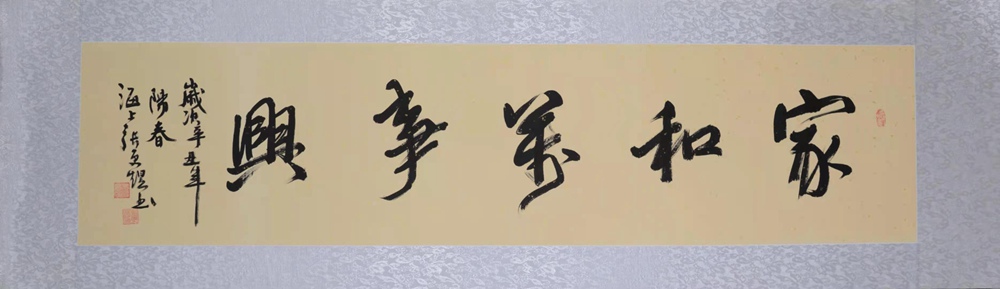 家和萬事興
歲次辛丑年
陽春
海上張
書